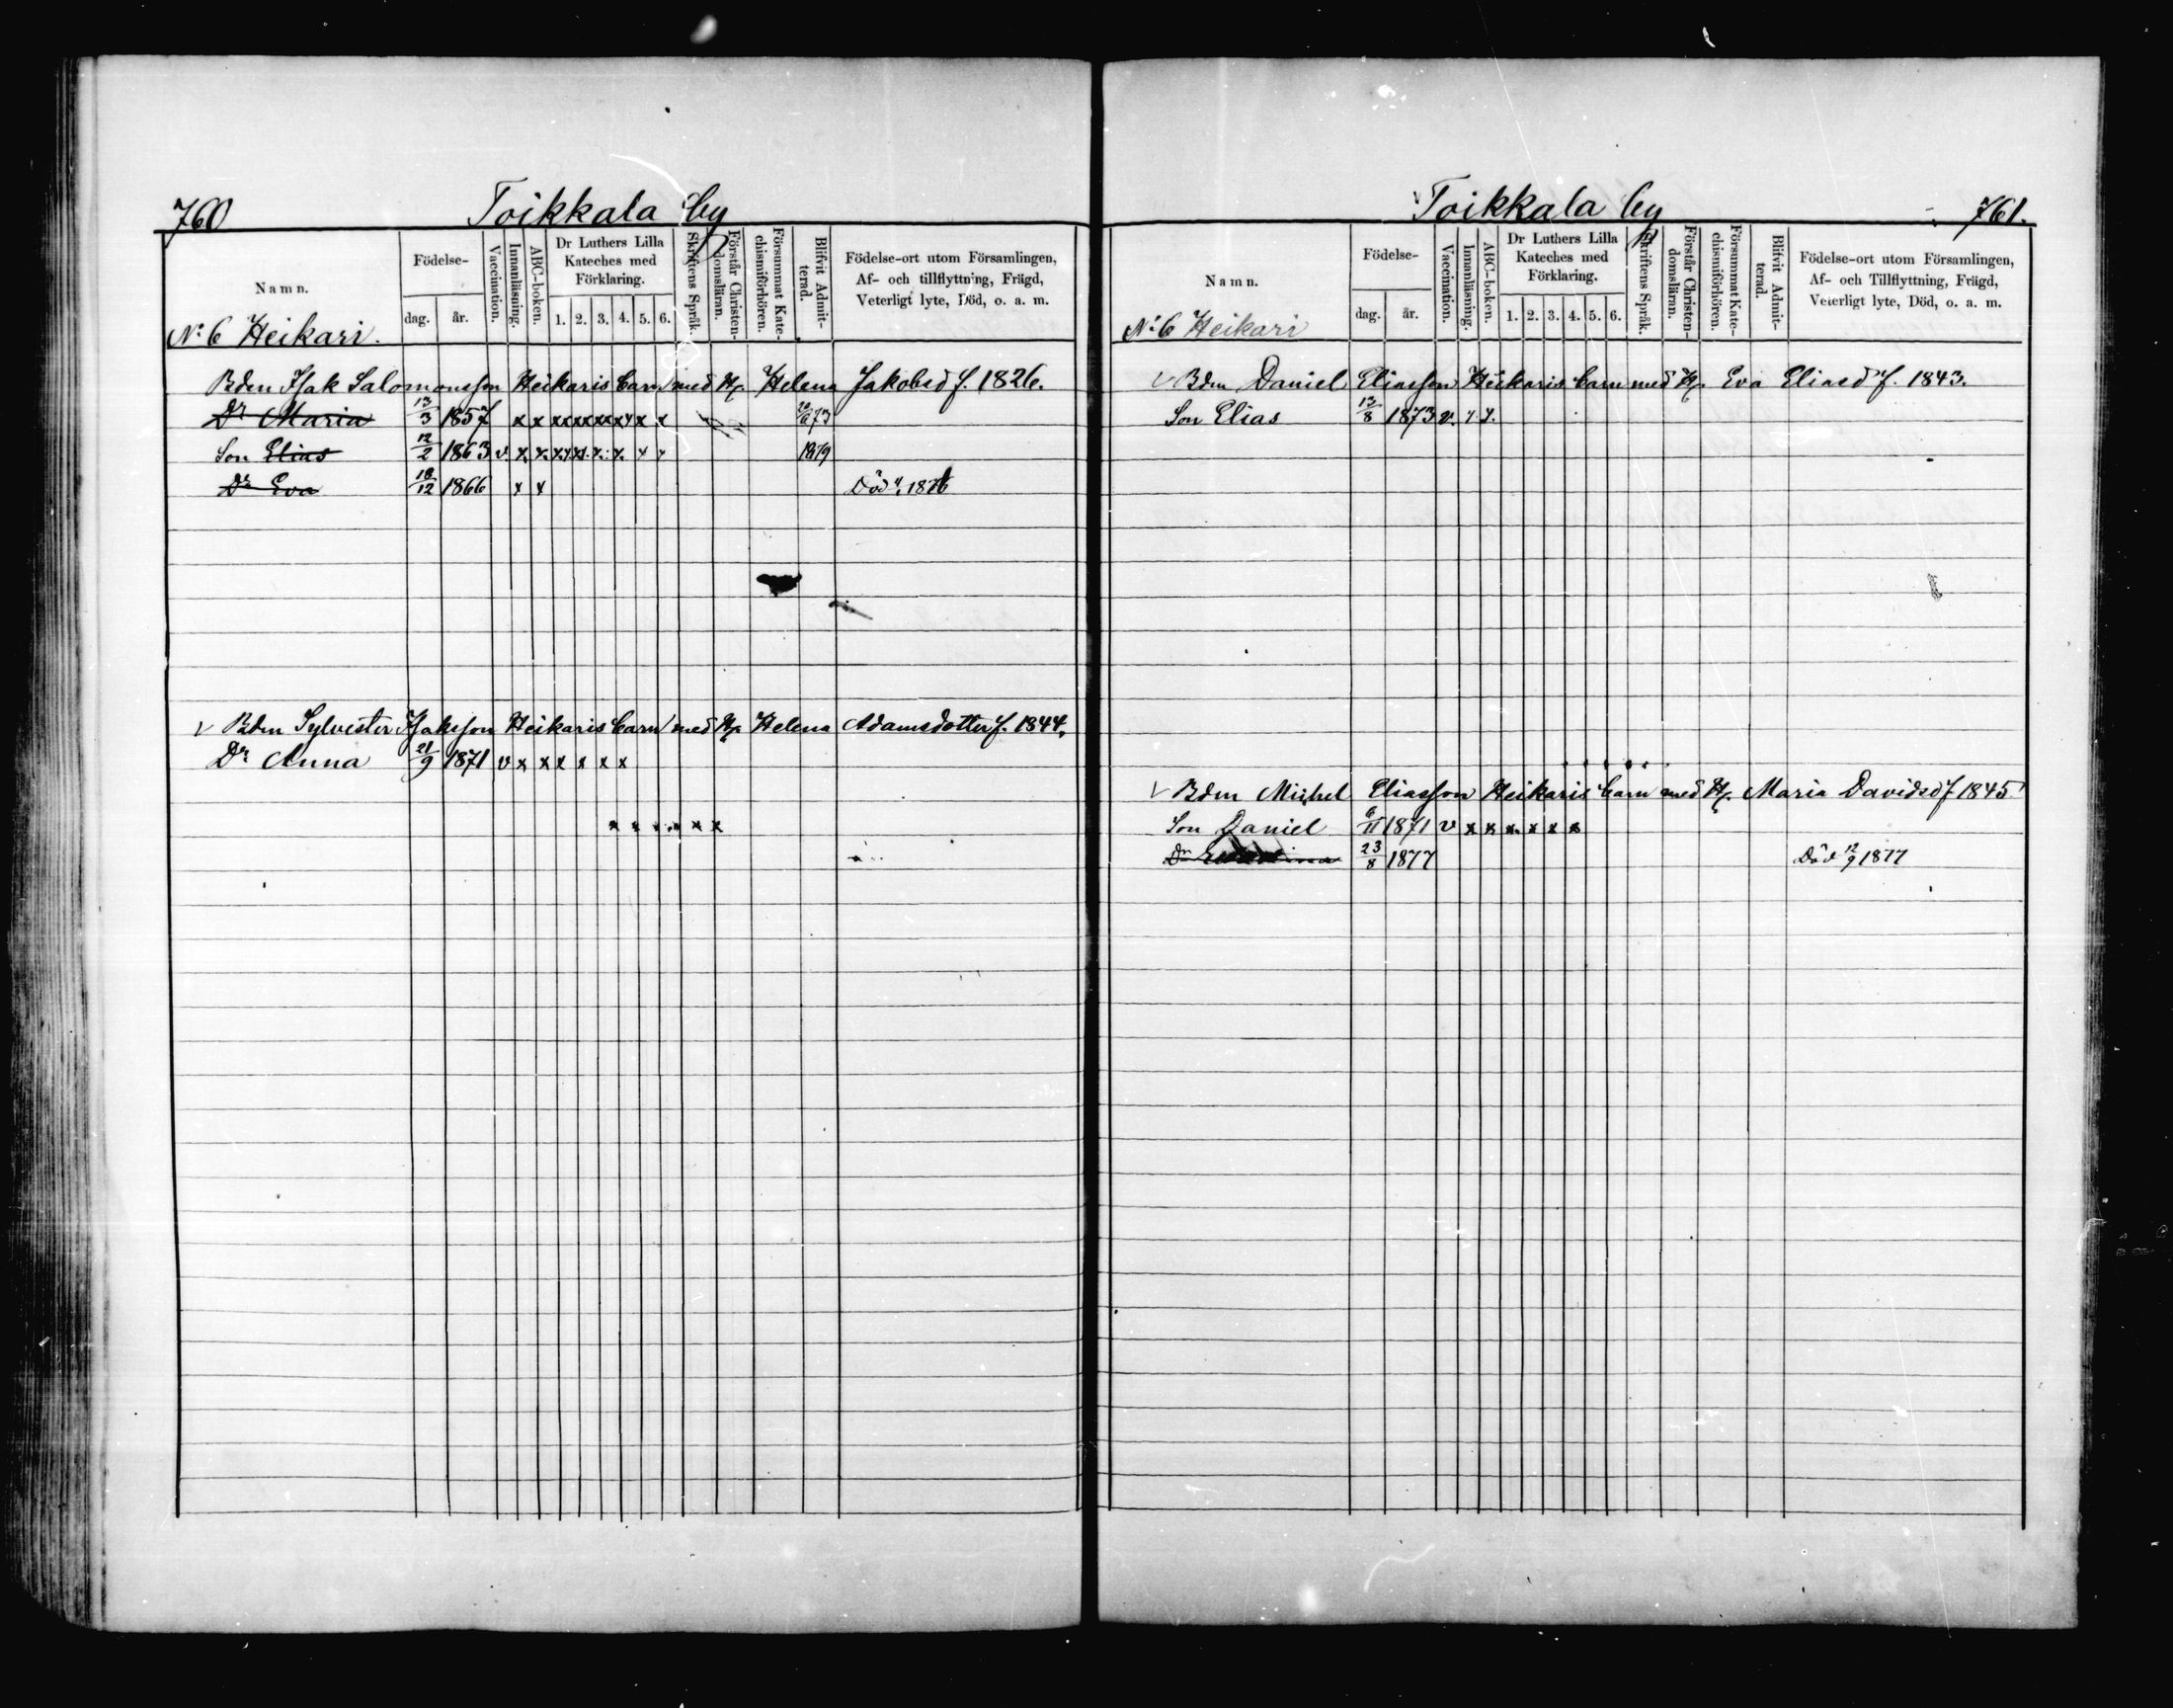 760 Toikkala by
Namn. Födelse- dag. år. Vaccination. Innanläsning. ABC-boken. Dr Luthers Lilla Kateches med Förklaring. 1. 2. 3. 4. 5. 6. Skriftens Språk. Förstår Christen-domsläran. Försummat Kate-chismiförhören. Blifvit Admit-terad. Födelse-ort utom Församlingen, Af- och tillflyttning, Frägd, Veterligt lyte, Död, o. a. m.
No 6 Heikari.
Bden Isak Salomonsson Heikaris barn med H. Helena Jakobsd f. 1826.
Dr Maria 13/3 1857 x x x x x x x x x x x 73
Son Elias 12/2 1863 v. x x. x x x x. x. x x 1879
Dr Eva 18/12 1866 x x Död 1876
v Bdm Sylvester Isaksson Heikaris barn med H. Helena Adamsdotter f. 1844.
Dr Anna 21/9 1871 v x x x x x x
x x x x
Toikkala by 761.
Namn. Födelse- dag. år. Vaccination. Innanläsning. ABC-boken. Dr Luthers Lilla Kateches med Förklaring. 1. 2. 3. 4. 5. 6. Skriftens Språk. Förstår Christen-domsläran. Försummat Kate-chismiförhören. Blifvit Admit-terad. Födelse-ort utom Församlingen, Af- och Tillflyttning, Frägd, Veterligt lyte, Död, o. a. m.
No 6 Heikari
v Bdm Daniel Eliasson Heikaris barn med H. Eva Eliasd f. 1843.
Son Elias 13/8 1873 v. x x.
v Bdm Michel Eliasson Heikaris barn med H. Maria Davidsd f 1845
Son Daniel 6/11 1871 v x x x x x x
Dr 23/8 1877 Död 12/9 1877